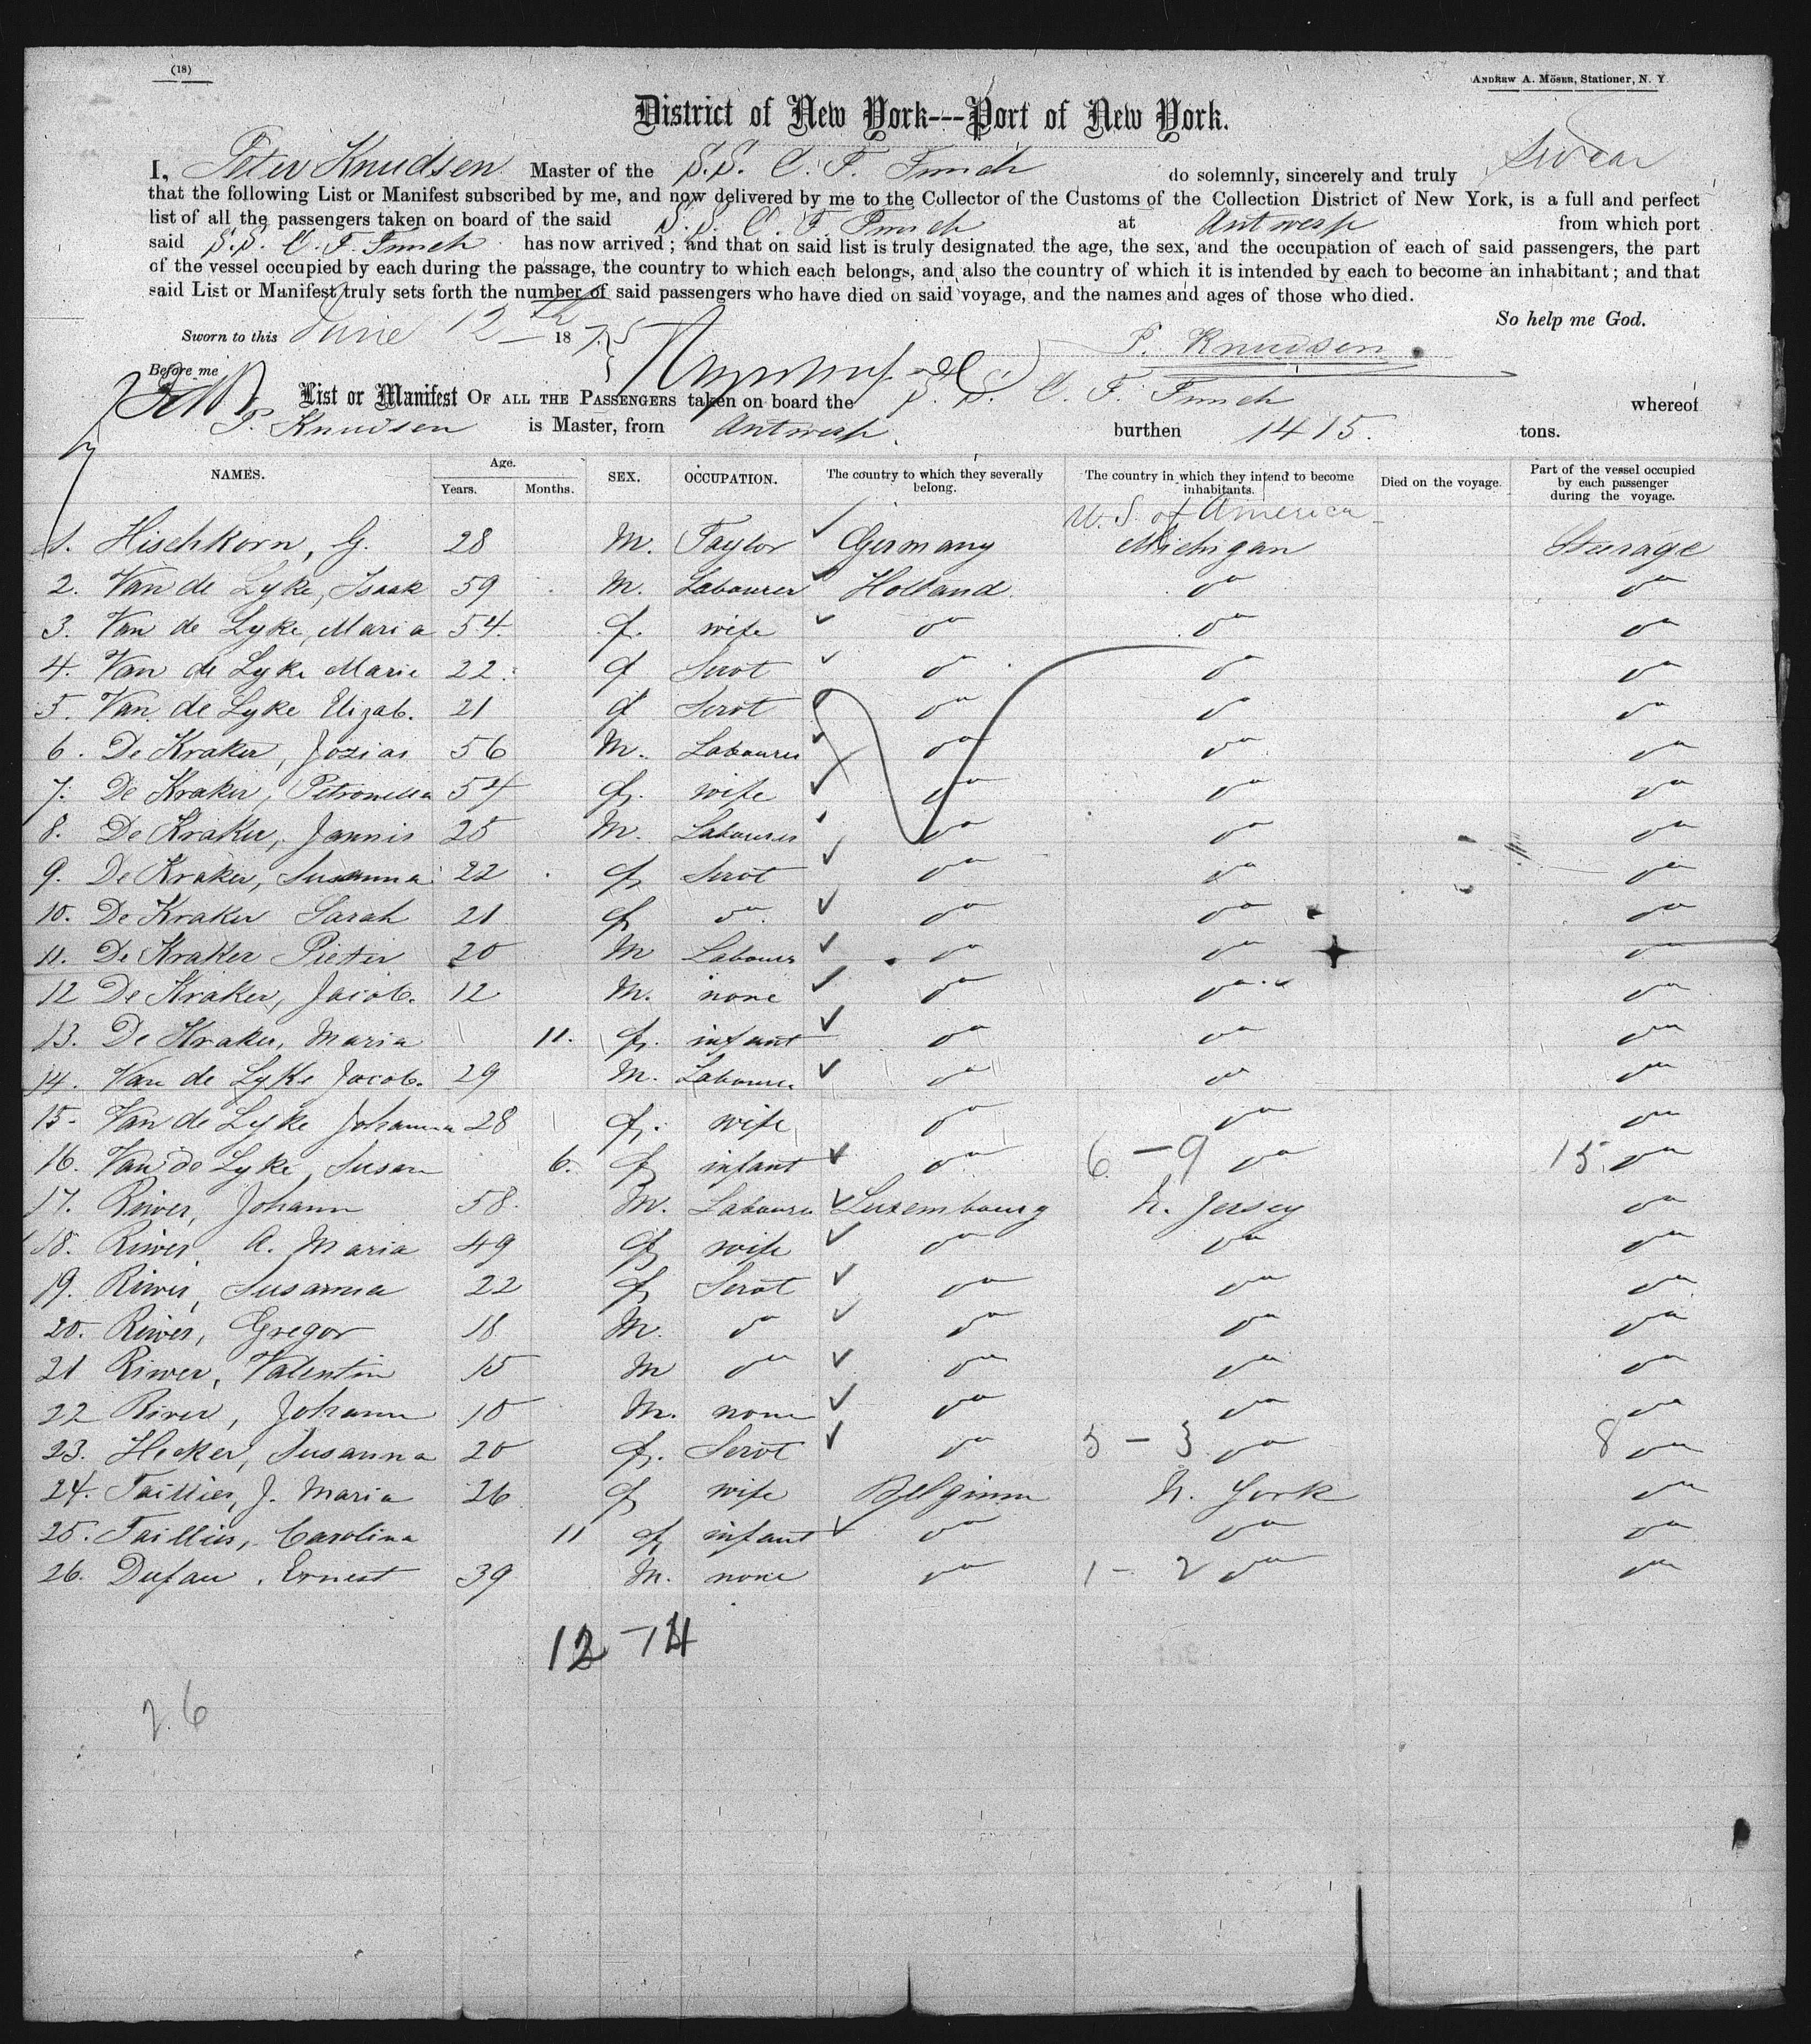 (18)
ANDREW A. MÖSER, Stationer, N. Y.
District of New York---Port of New York.
I, Peter Knudsen Master of the S.S. C. F. Funch do solemnly, sincerely and truly Swear
that the following List or Manifest subscribed by me, and now delivered by me to the Collector of the Customs of the Collection District of New York, is a full and perfect
list of all the passengers taken on board of the said S.S. C. F. Funch at Antwerp from which port
said S.S. C. F. Funch has now arrived; and that on said list is truly designated the age, the sex, and the occupation of each of said passengers, the part
of the vessel occupied by each during the passage, the country to which each belongs, and also the country of which it is intended by each to become an inhabitant; and that
said List or Manifest truly sets forth the number of said passengers who have died on said voyage, and the names and ages of those who died.
So help me God.
Sworn to this June 12th 1875 P. Knudsen
Before me
List or Manifest OF ALL THE PASSENGERS taken on board the S. S. C. F. Funch whereof
P. Knudsen is Master, from Antwerp. burthen 1415. tons.
NAMES. Age. Years. Months. SEX. OCCUPATION. The country to which they severally belong. The country in which they intend to become inhabitants. Died on the voyage. Part of the vessel occupied by each passenger during the voyage.
U. S. of America
1. Hischkorn, G. 28 M. Taylor Germany Michigan Steerage
2. Van de Lyke, Isaak 59 M. Labourer Holland. do do
3. Van de Lyke, Maria 54. f. wife do do do
4. Van de Lyke Marie 22. f Servt do do do
5. Van de Lyke Elizab. 21 f Servt do do do
6. De Kraker, Jozias 56 M. Labourer do do do
7. De Kraker, Petronella 54 f. wife do do do
8. De Kraker, Jannis 25 M. Labourer do do do
9. De Kraker, Susanna 22 f Servt do do do
10. De Kraker Sarah 21 f do do do do
11. De Kraker Pieter 20 M Labourer do do do
12 De Kraker, Jacob. 12 M. none do do do
13. De Kraker, Maria 11. f. infant do do do
14. Van de Lyke Jacob. 29 M. Labourer do do do
15. Van de Lyke Johanna 28 f. wife do do do
16. Van de Lyke, Susan 6. f infant do 6 - 9 do 15 do
17. Riwer, Johann 58. M. Labourer Luxembourg N. Jersey do
18. Riwer, A. Maria 49 f wife do do do
19. Riwer, Susanna 22 f Servt do do do
20. Riwer, Gregor 18 M. do do do do
21 Riwer, Valentin 15 M do do do do
22 Riwer, Johann 10 M. none do do do
23. Hecker, Susanna 20 f. Servt do 5 - 3 do 8 do
24. Taillier, J. Maria 26 f wife Belgium N. York do
25. Taillier, Carolina 11 f infant do do do
26. Dufau, Ernest 39 M. none do 1 - 2 do do
12 - 14
26